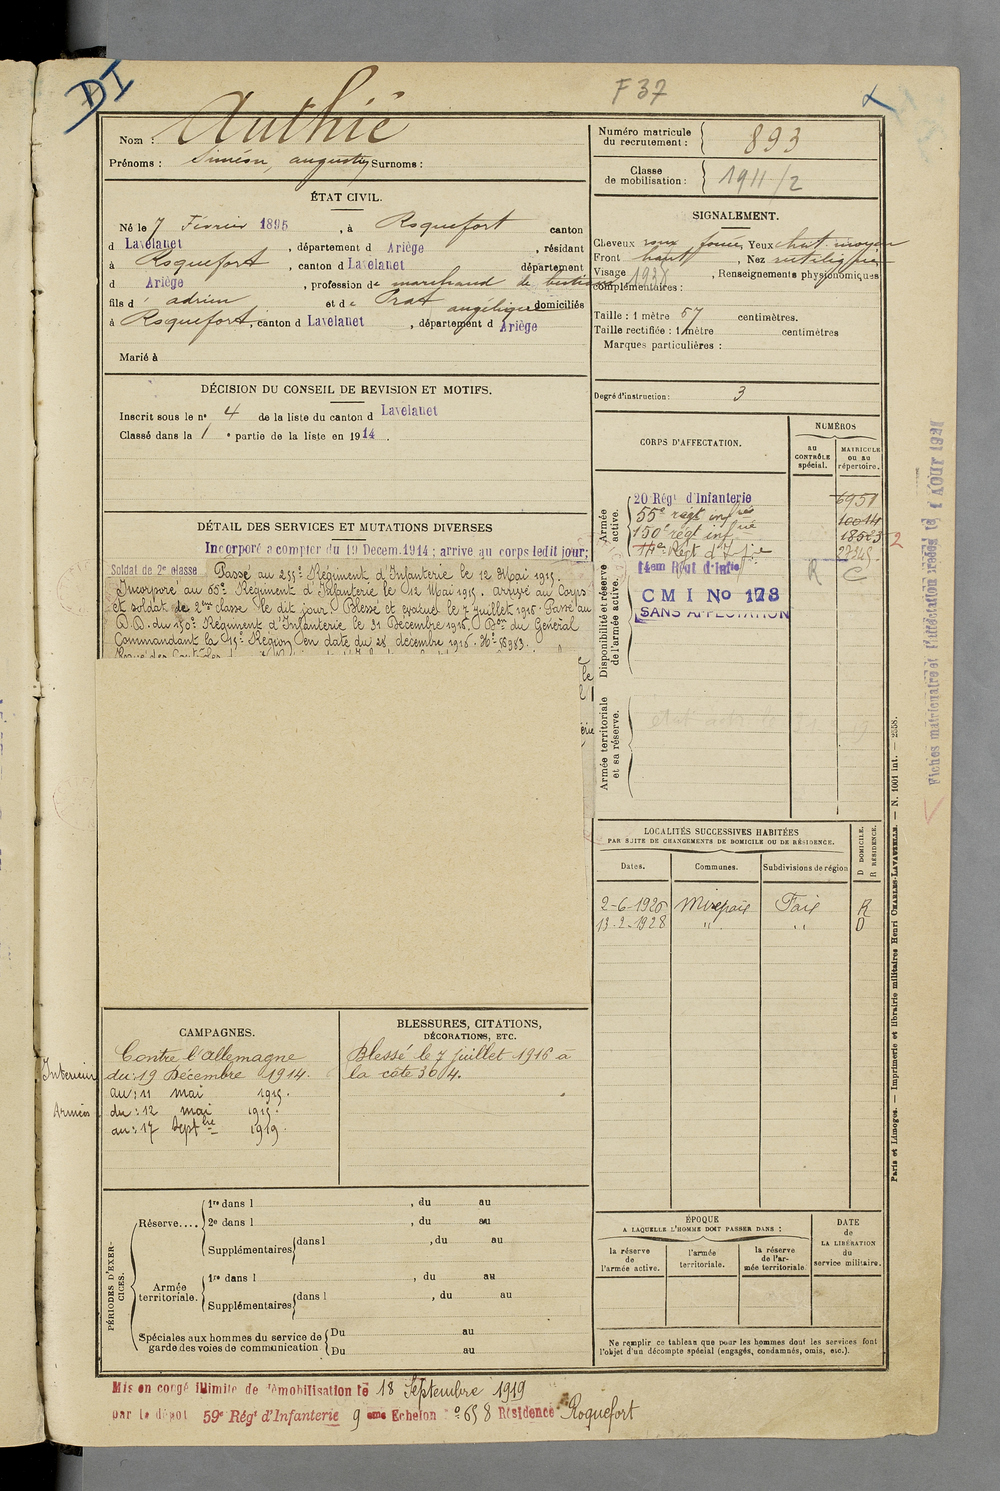 DI
F 37
Nom : Authié
Prénoms : Siméon, augustin Surnoms :
Numéro matricule du recrutement : 893
Classe de mobilisation : 1911/2
ÉTAT CIVIL.
Né le 7 Février 1895, à Roquefort canton
d Lavelanet, département d Ariège, résidant
à Roquefort, canton d Lavelanet département
d Ariège, profession de marchand de bestiaux
fils d' adrien et de Prat angélique domiciliés
à Roquefort, canton d Lavelanet, département d Ariège
Marié à
SIGNALEMENT.
Cheveux roux foncé, Yeux chat. moyen
Front haut, Nez rectiligne
Visage , Renseignements physionomiques
complémentaires : 1938
Taille : 1 mètre 57 centimètres.
Taille rectifiée : 1 mètre centimètres
Marques particulières :
Degré d'instruction : 3
DÉCISION DU CONSEIL DE REVISION ET MOTIFS.
Inscrit sous le n° 4 de la liste du canton d Lavelanet
Classé dans la 1e partie de la liste en 1914.
DÉTAIL DES SERVICES ET MUTATIONS DIVERSES
Incorporé a compter du 19 Decem. 1914 ; arrive au corps ledit jour;
Soldat de 2e classe Passé au 255e Régiment d'Infanterie le 12 Mai 1915.
Incorporé au 55e Régiment d'Infanterie le 12 Mai 1915. arrivé au Corps
et soldat de 2ème classe le dit jour. Blessé et évacué le 7 juillet 1916. Passé au
D.D. du 150e Régiment d'Infanterie le 31 Décembre 1916. Don du Général
Commandant la 15e Région en date du 28 decembre 1916. No 56983.
CORPS D'AFFECTATION.
NUMÉROS
au CONTRÔLE spécial.
MATRICULE ou au répertoire.
Armée active.
20 Régt d'Infanterie 6951
55e regt infrie 10014
150e regt infrie 18525
27245
14em Régt d'Infie R C
CMI No 178
SANS AFFECTATION
Disponibilité et réserve de l'armée active.
Armée territoriale et sa réserve.
Fiches matriculaire et d'affectation créées le, 1 AOUT 1921
LOCALITÉS SUCCESSIVES HABITÉES
PAR SUITE DE CHANGEMENTS DE DOMICILE OU DE RÉSIDENCE.
Dates. Communes. Subdivisions de région
D DOMICILE.
R RÉSIDENCE.
2-6-1926 Mirepoix Foix R
13-2-1928 " " D
CAMPAGNES.
Contre l'allemagne
Intérieur du : 19 Décembre 1914.
au : 11 mai 1915.
Armées du : 12 mai 1915.
au : 17 septbre 1919.
BLESSURES, CITATIONS,
DÉCORATIONS, ETC.
Blessé le 7 juillet 1916 à
la côte 304.
PÉRIODES D'EXERCICES.
Réserve....
1re dans l , du au
2e dans l , du au
Supplémentaires dans l , du au
Armée territoriale.
1re dans l , du au
Supplémentaires dans l , du au
Spéciales aux hommes du service de garde des voies de communication
Du au
Du au
ÉPOQUE
A LAQUELLE L'HOMME DOIT PASSER DANS :
la réserve de l'armée active.
l'armée territoriale.
la réserve de l'armée territoriale.
DATE de LA LIBÉRATION du service militaire.
Ne remplir ce tableau que pour les hommes dont les services font
l'objet d'un décompte spécial (engagés, condamnés, omis, etc.).
Paris et Limoges. — Imprimerie et librairie militaires Henri CHARLES-LAVAUZELLE. — N. 1001 int. — 2558.
Mis en congé illimité de démobilisation le 18 Septembre 1919
par le dépôt 59e Régt d'Infanterie 9 eme Echelon no 658 Résidence Roquefort